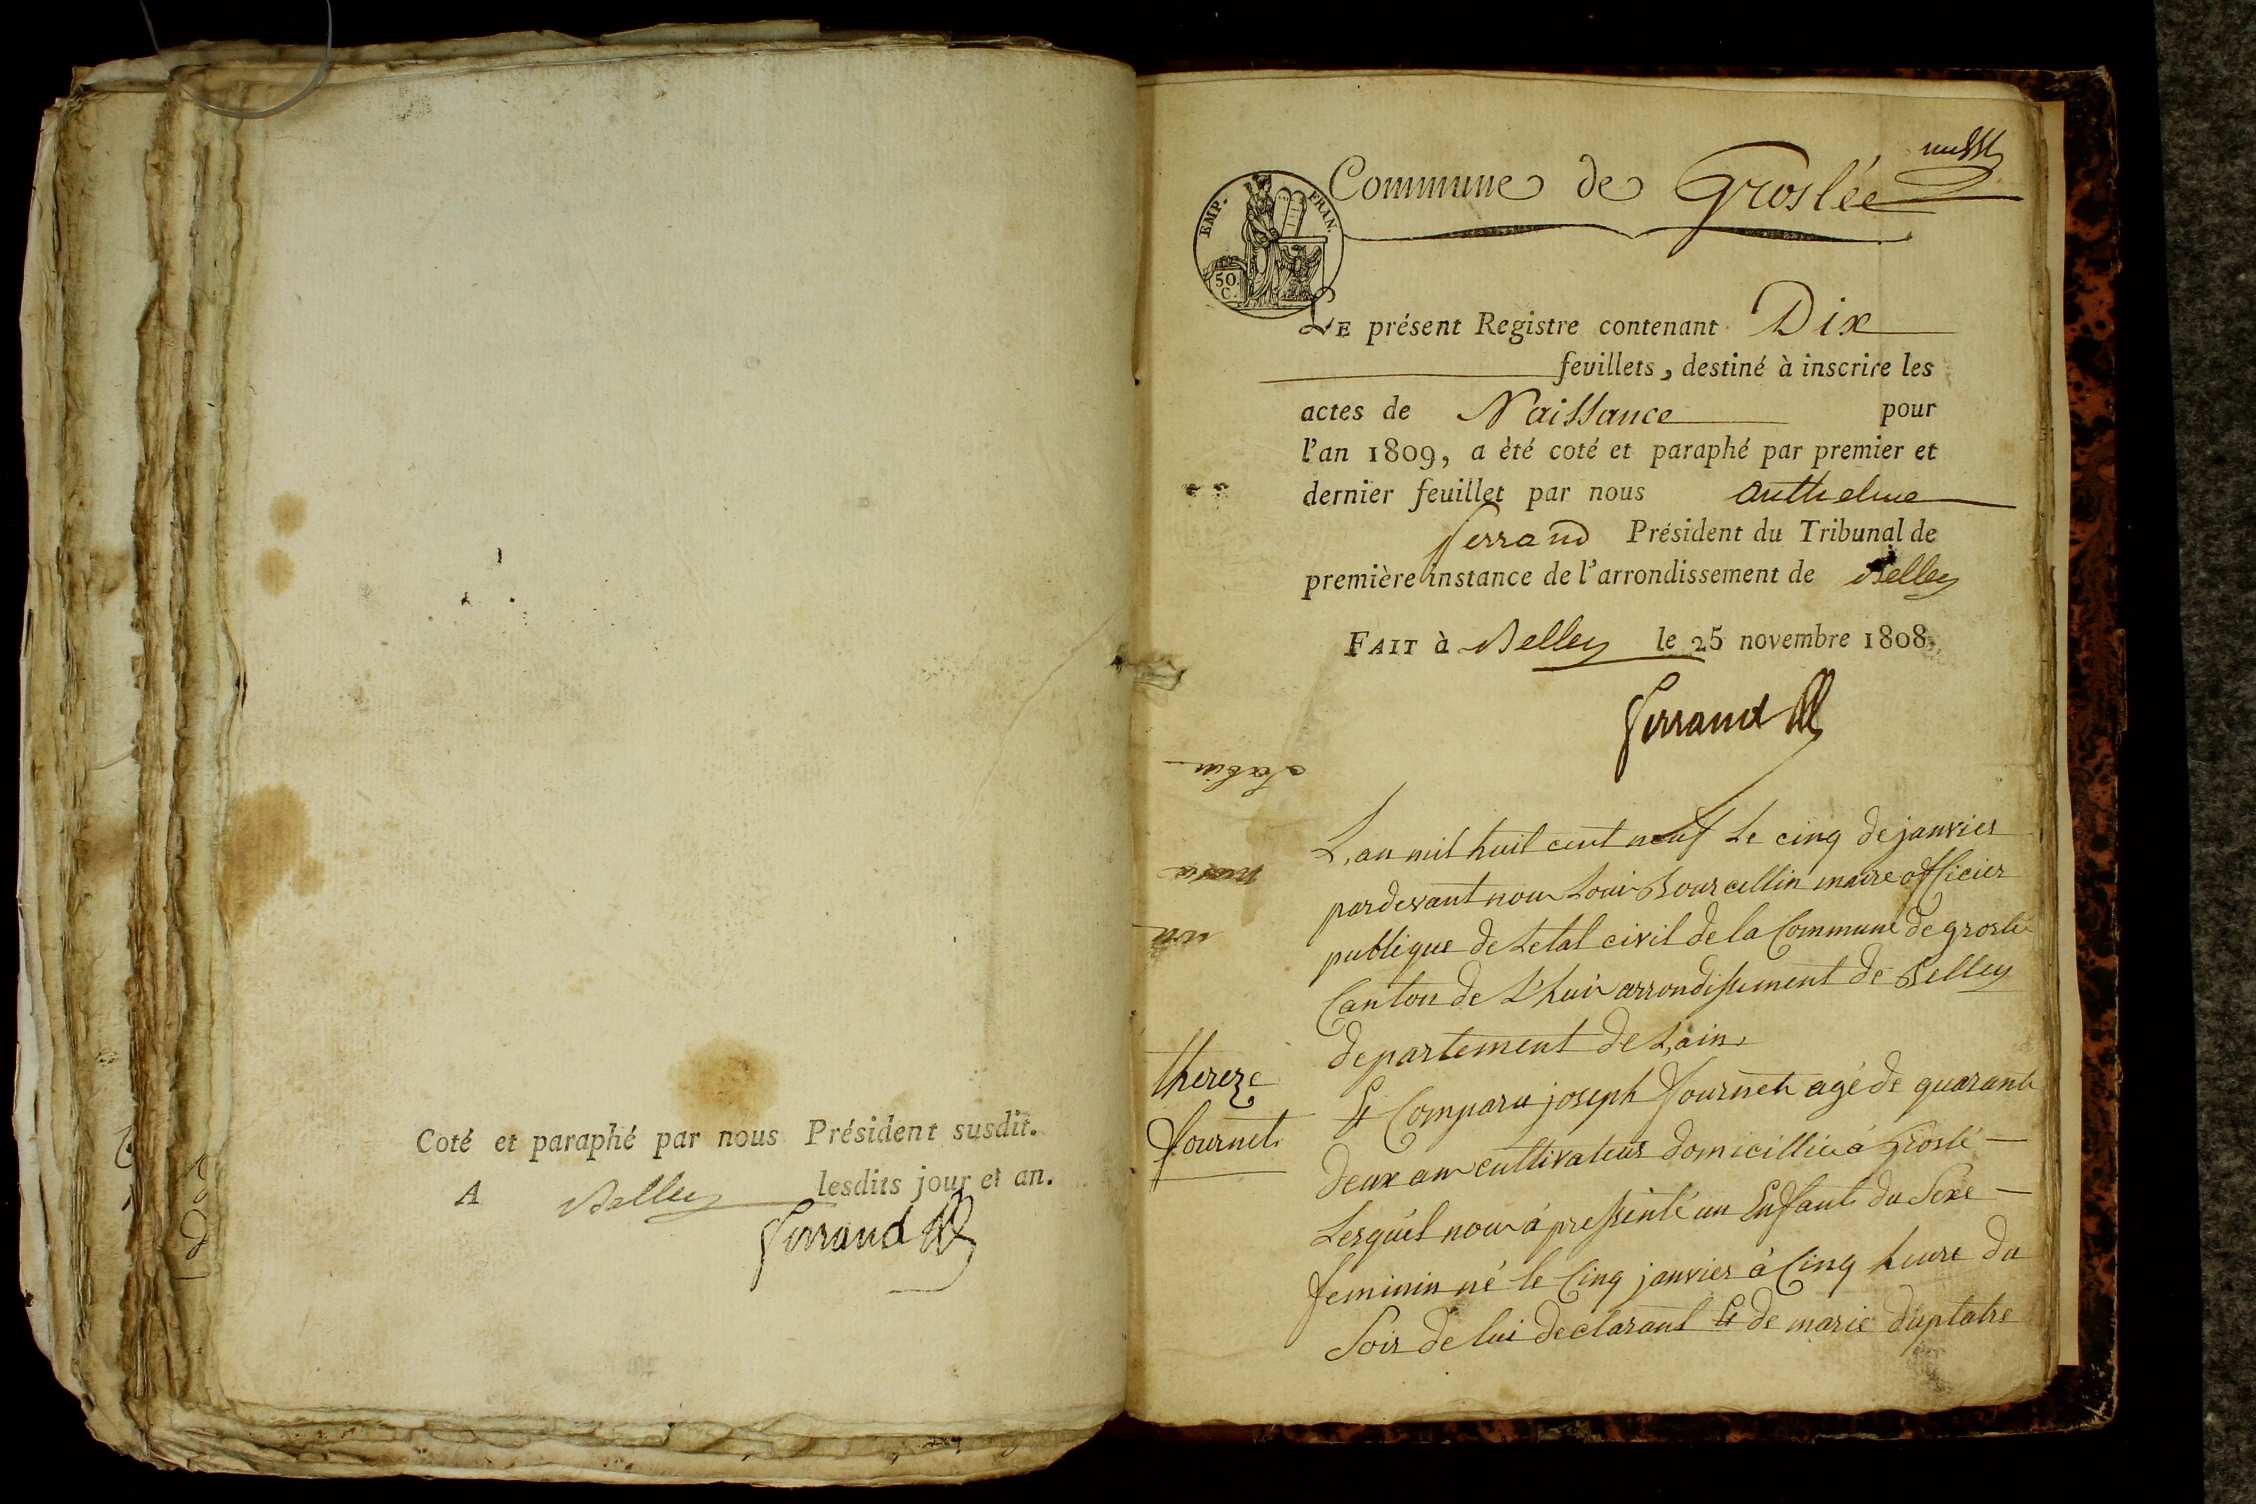 Coté et paraphé par nous Président susdit.
A Belley lesdits jour et an.
Ferrand
Commune de Groslée
EMP. FRAN.
50 C.
LE présent Registre contenant Dix
feuillets, destiné à inscrire les
actes de Naissance pour
l'an 1809, a èté coté et paraphé par premier et
dernier feuillet par nous anthelme
ferrand Président du Tribunal de
première instance de l'arrondissement de Belley
FAIT à Belley le 25 novembre 1808.
Ferrand
L'an mil huit cent neuf Le cinq de janvier
pardevant nou Loui Bourcellin maire officier
publique de Letat civil de la Commune de groslé
Canton de L'hui arrondissement de Belley
departement de L'ain
thereze
fournet
Et Comparu joseph fournet agé de quarante
deux an cultivateur domicillié à Groslé
Lesquel nou à pressenté un Enfant du Sexe
feminin né le Cinq janvier à Cinq heure du
Soir de lui declarant Et de marie duplatre